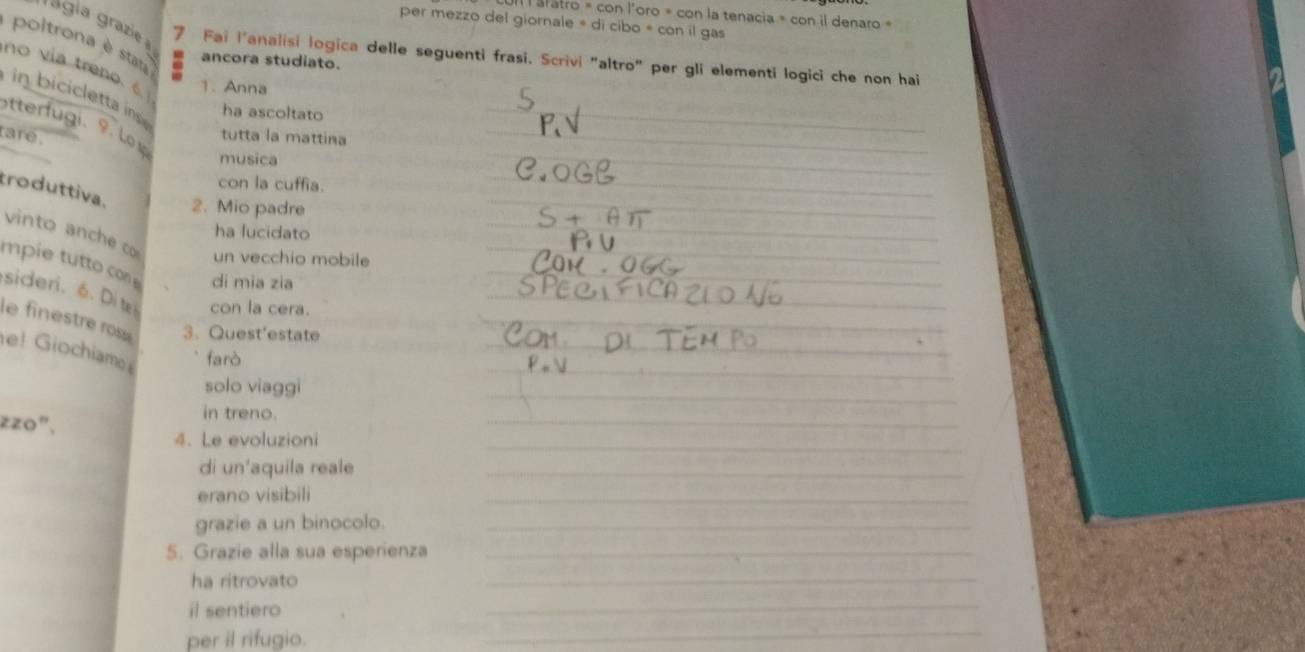 l'aratro * con l'oro * con la tenacia * con il denaro *
per mezzo del giornale * di cibo * con il gas
7 Fai l'analisi logica delle seguenti frasi. Scrivi "altro" per gli elementi logici che non hai
ancora studiato.
1. Anna S
ha ascoltato P.V
tutta la mattina
musica C.OGG
con la cuffia.
2. Mio padre S + A
ha lucidato P.V
un vecchio mobile COM. OGG
di mia zia SPECIFICAZIONE
con la cera.
3. Quest'estate COM. DI TEMPO
farò P.V
solo viaggi
in treno.
4. Le evoluzioni
di un'aquila reale
erano visibili
grazie a un binocolo.
5. Grazie alla sua esperienza
ha ritrovato
il sentiero
per il rifugio.
grazie a
poltrona è stata
no via treno. 6.
in bicicletta
otterfugi. 9. Lo
tare.
troduttiva.
vinto anche
mpie tutto con
sideri. 6. Di
le finestre rosse
e! Giochiamo
zzo".
2